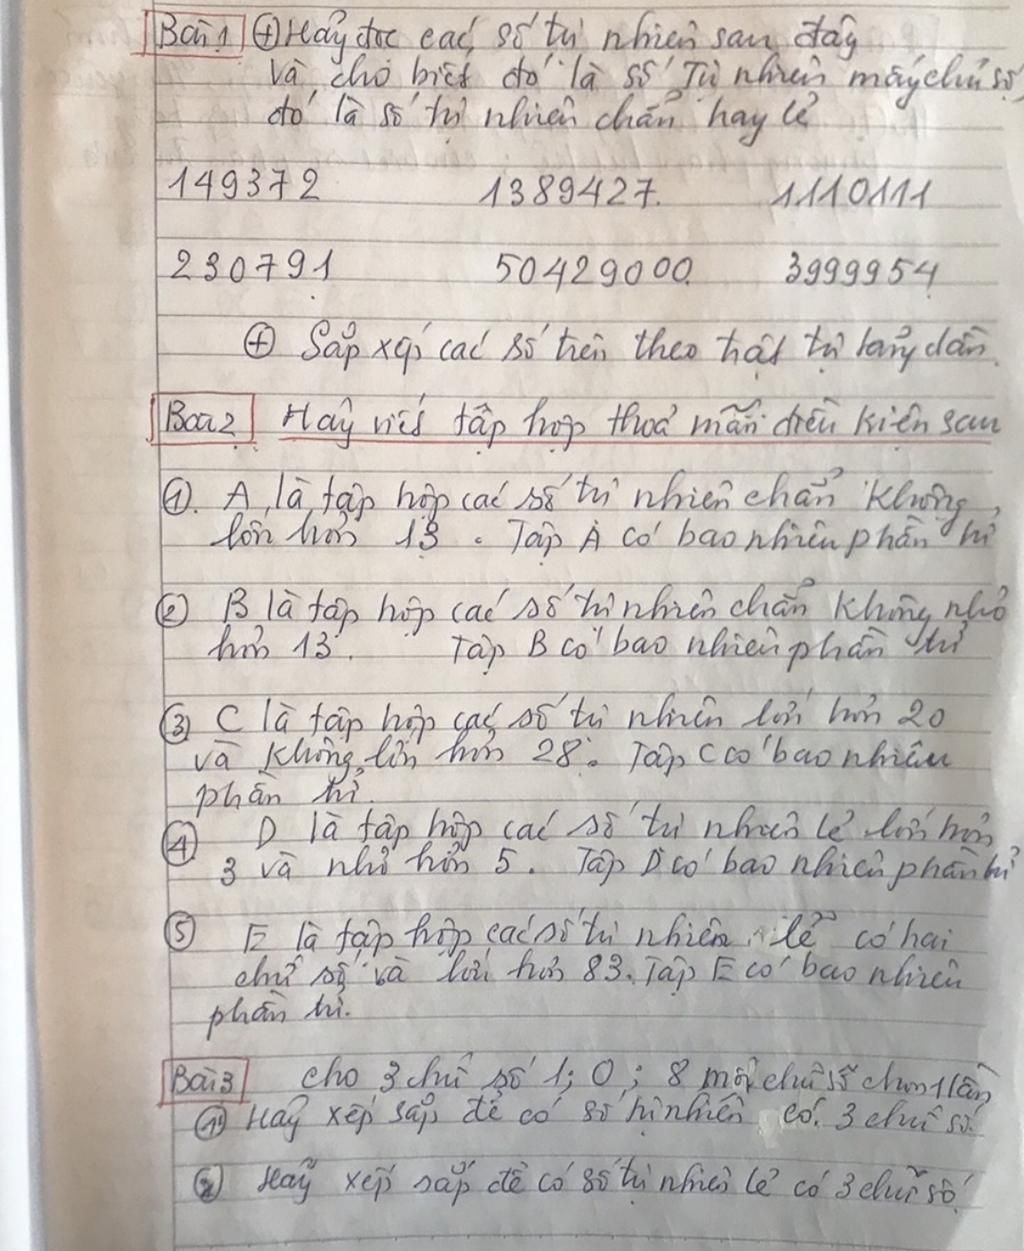 Bài 1 ⊕ Hãy đọc các số tự nhiên sau đây
và cho biết đó là số Tự nhiên mấy chữ số,
đó là số tự nhiên chẵn hay lẻ
149372 1389427. 1110111
230791 50429000 3999954
⊕ Sắp xếp các số trên theo thật tự tăng dần.
Bài 2 Hãy viết tập hợp thoả mãn điều kiện sau
①. A là tập hợp các số tự nhiên chẵn không
lớn hơn 13. Tập A có bao nhiêu phần tử
② B là tập hợp các số tự nhiên chẵn không nhỏ
hơn 13. Tập B có bao nhiêu phần tử
③ C là tập hợp các số tự nhiên lớn hơn 20
và không lớn hơn 28. Tập C có bao nhiêu
phần tử.
④ D là tập hợp các số tự nhiên lẻ lớn hơn
3 và nhỏ hơn 5. Tập D có bao nhiêu phần tử
⑤ E là tập hợp các số tự nhiên lẻ có hai
chữ số và lớn hơn 83. Tập E có bao nhiêu
phần tử.
Bài 3 cho 3 chữ số 1; 0; 8 mỗi chữ số chọn 1 lần
① Hãy xếp sắp để có số tự nhiên có 3 chữ số.
② Hãy xếp sắp để có số tự nhiên lẻ có 3 chữ số